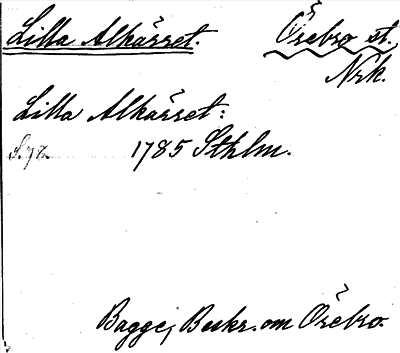 Lilla Alkärret. Örebro st.
Nrk.
Lilla Alkärret:
S. 72 1785 Sthlm.
Bagge, Beskr. om Örebro.